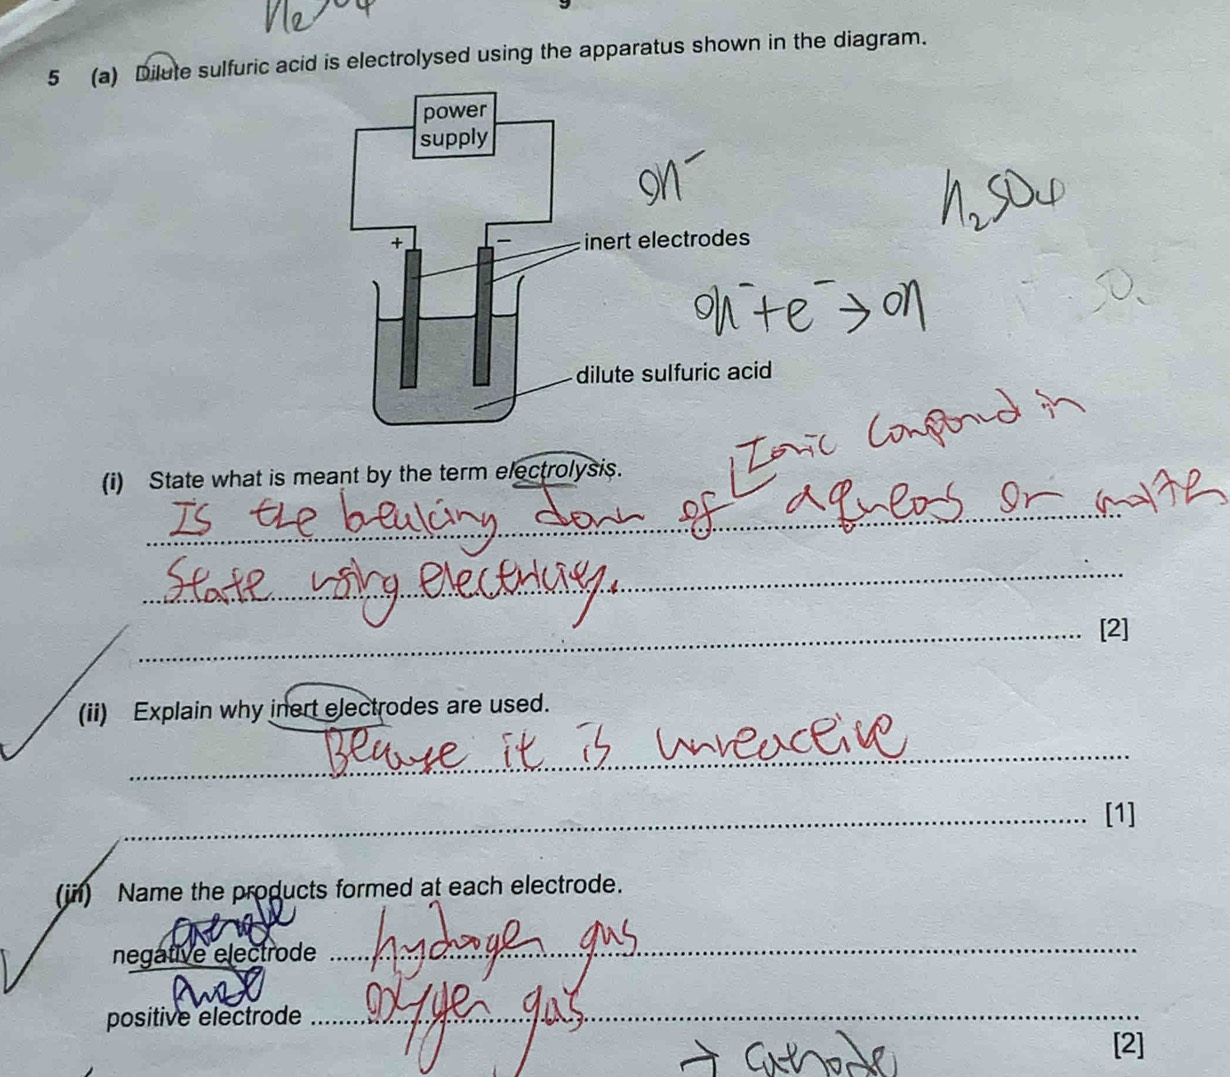 H2SO4
5 (a) Dilute sulfuric acid is electrolysed using the apparatus shown in the diagram.
power
supply
oh⁻
h₂SO4
+ −
inert electrodes
oh⁻+e⁻→oh
dilute sulfuric acid
Ionic Compound in
(i) State what is meant by the term electrolysis.
Is the breaking down of aqueous or molten
State using electricity.
[2]
(ii) Explain why inert electrodes are used.
Because it is unreactive
[1]
(iii) Name the products formed at each electrode.
negative electrode hydrogen gas
positive electrode oxygen gas
[2]
→ Cathode